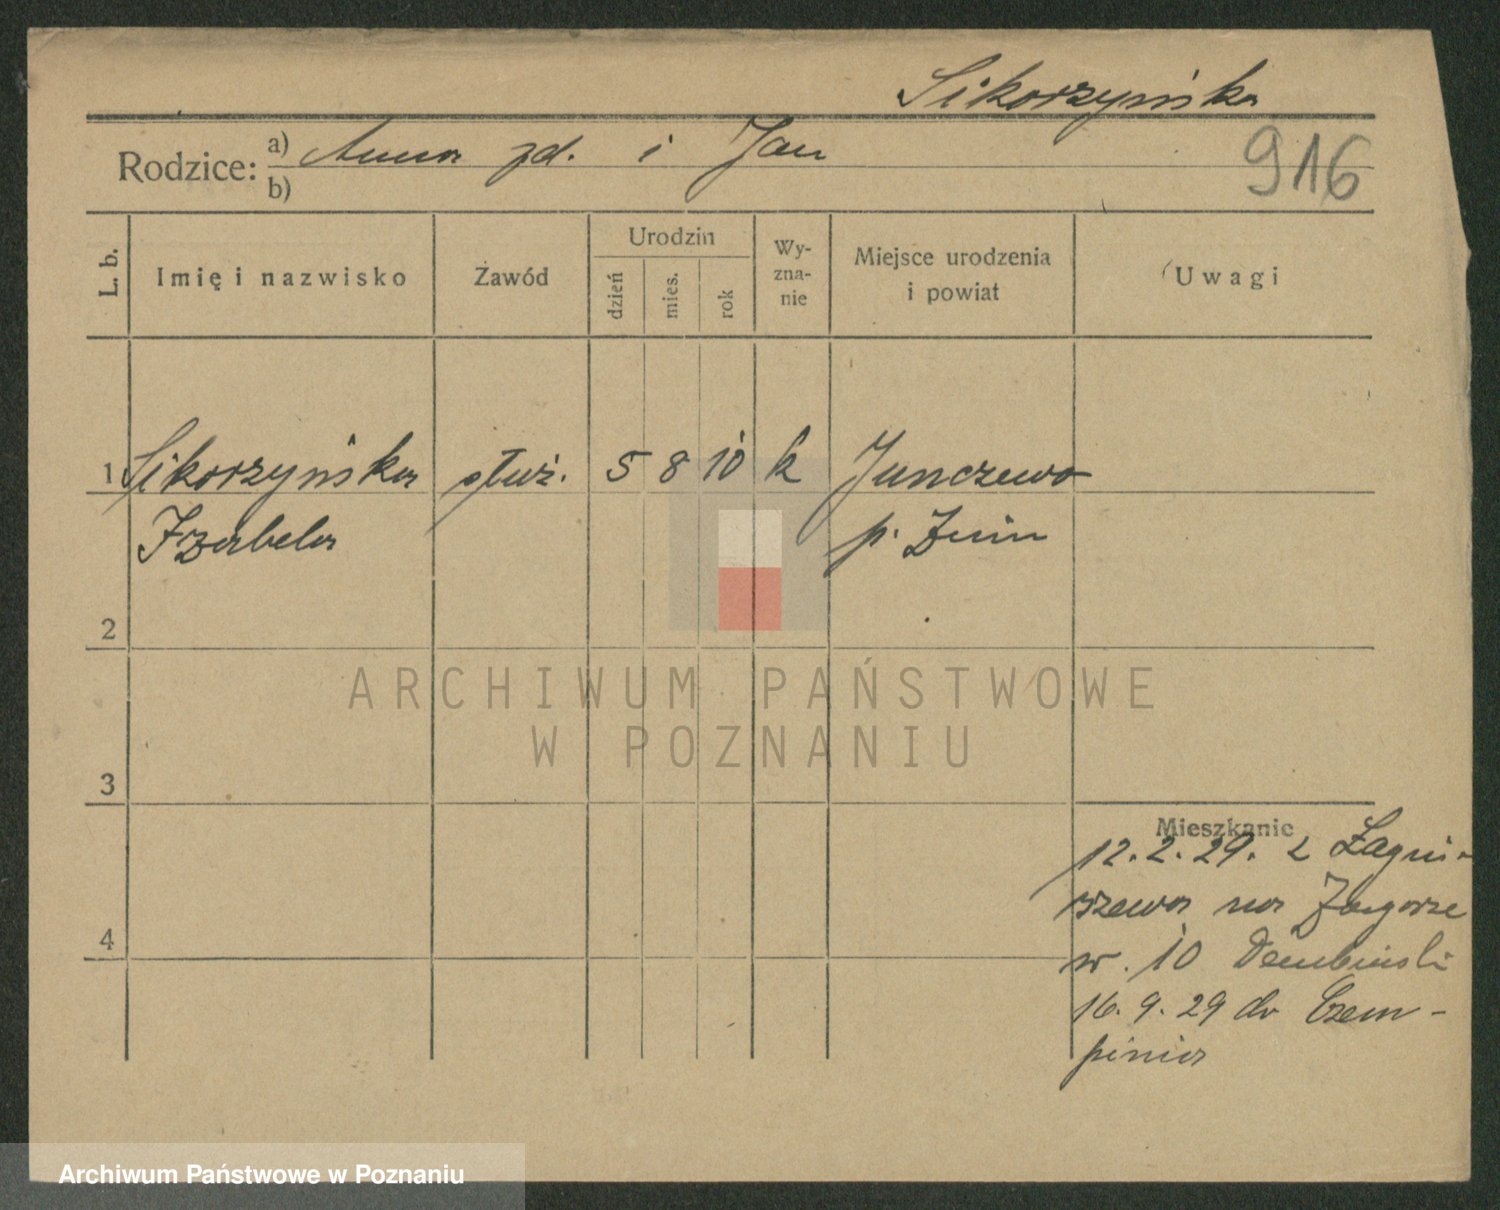 Sikorzyńska
916
Rodzice: a) Anna zd. i Jan
b)
L. b.
Imię i nazwisko
Zawód
Urodzin
dzień
mies.
rok
Wy-
zna-
nie
Miejsce urodzenia
i powiat
Uwagi
1 Sikorzyńska służ. 5 8 10 k Junczewo
Izabela p. Żnin
2
ARCHIWUM PAŃSTWOWE
W POZNANIU
3
Mieszkanie
12.2.29. z Łagni-
szewa na Zagorze
nr. 10 Dembinski
4
16.9.29 do Czem-
pinia
Archiwum Państwowe w Poznaniu